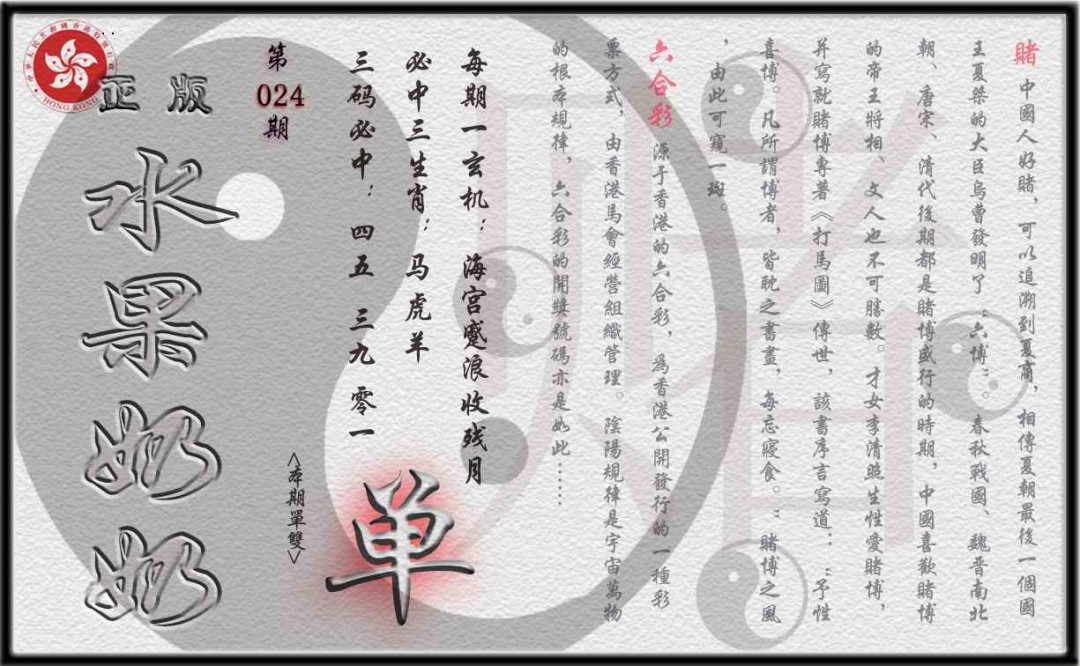 賭 中國人好賭，可以追溯到夏商，相傳夏朝最後一個國
王夏桀的大臣烏曹發明了“六博”。春秋戰國、魏晋南北
朝、唐宋、清代後期都是賭博盛行的時期，中國喜歡賭博
的帝王將相、文人也不可勝數。才女李清照生性愛賭博，
并寫就賭博專著《打馬圖》傳世，該書序言寫道：“予性
喜博。凡所謂博者，皆耽之書畫，每忘寢食。”賭博之風
，由此可窺一斑。
六合彩 源于香港的六合彩，爲香港公開發行的一種彩
票方式，由香港馬會經營組織管理。陰陽規律是宇宙萬物
的根本規律，六合彩的開獎號碼亦是如此……
每期一玄机：海宫蹙浪收残月
必中三生肖：马虎羊
三码必中：四五 三九 零一
单
<本期單雙>
第
024
期
正版
水果奶奶
HONG KONG